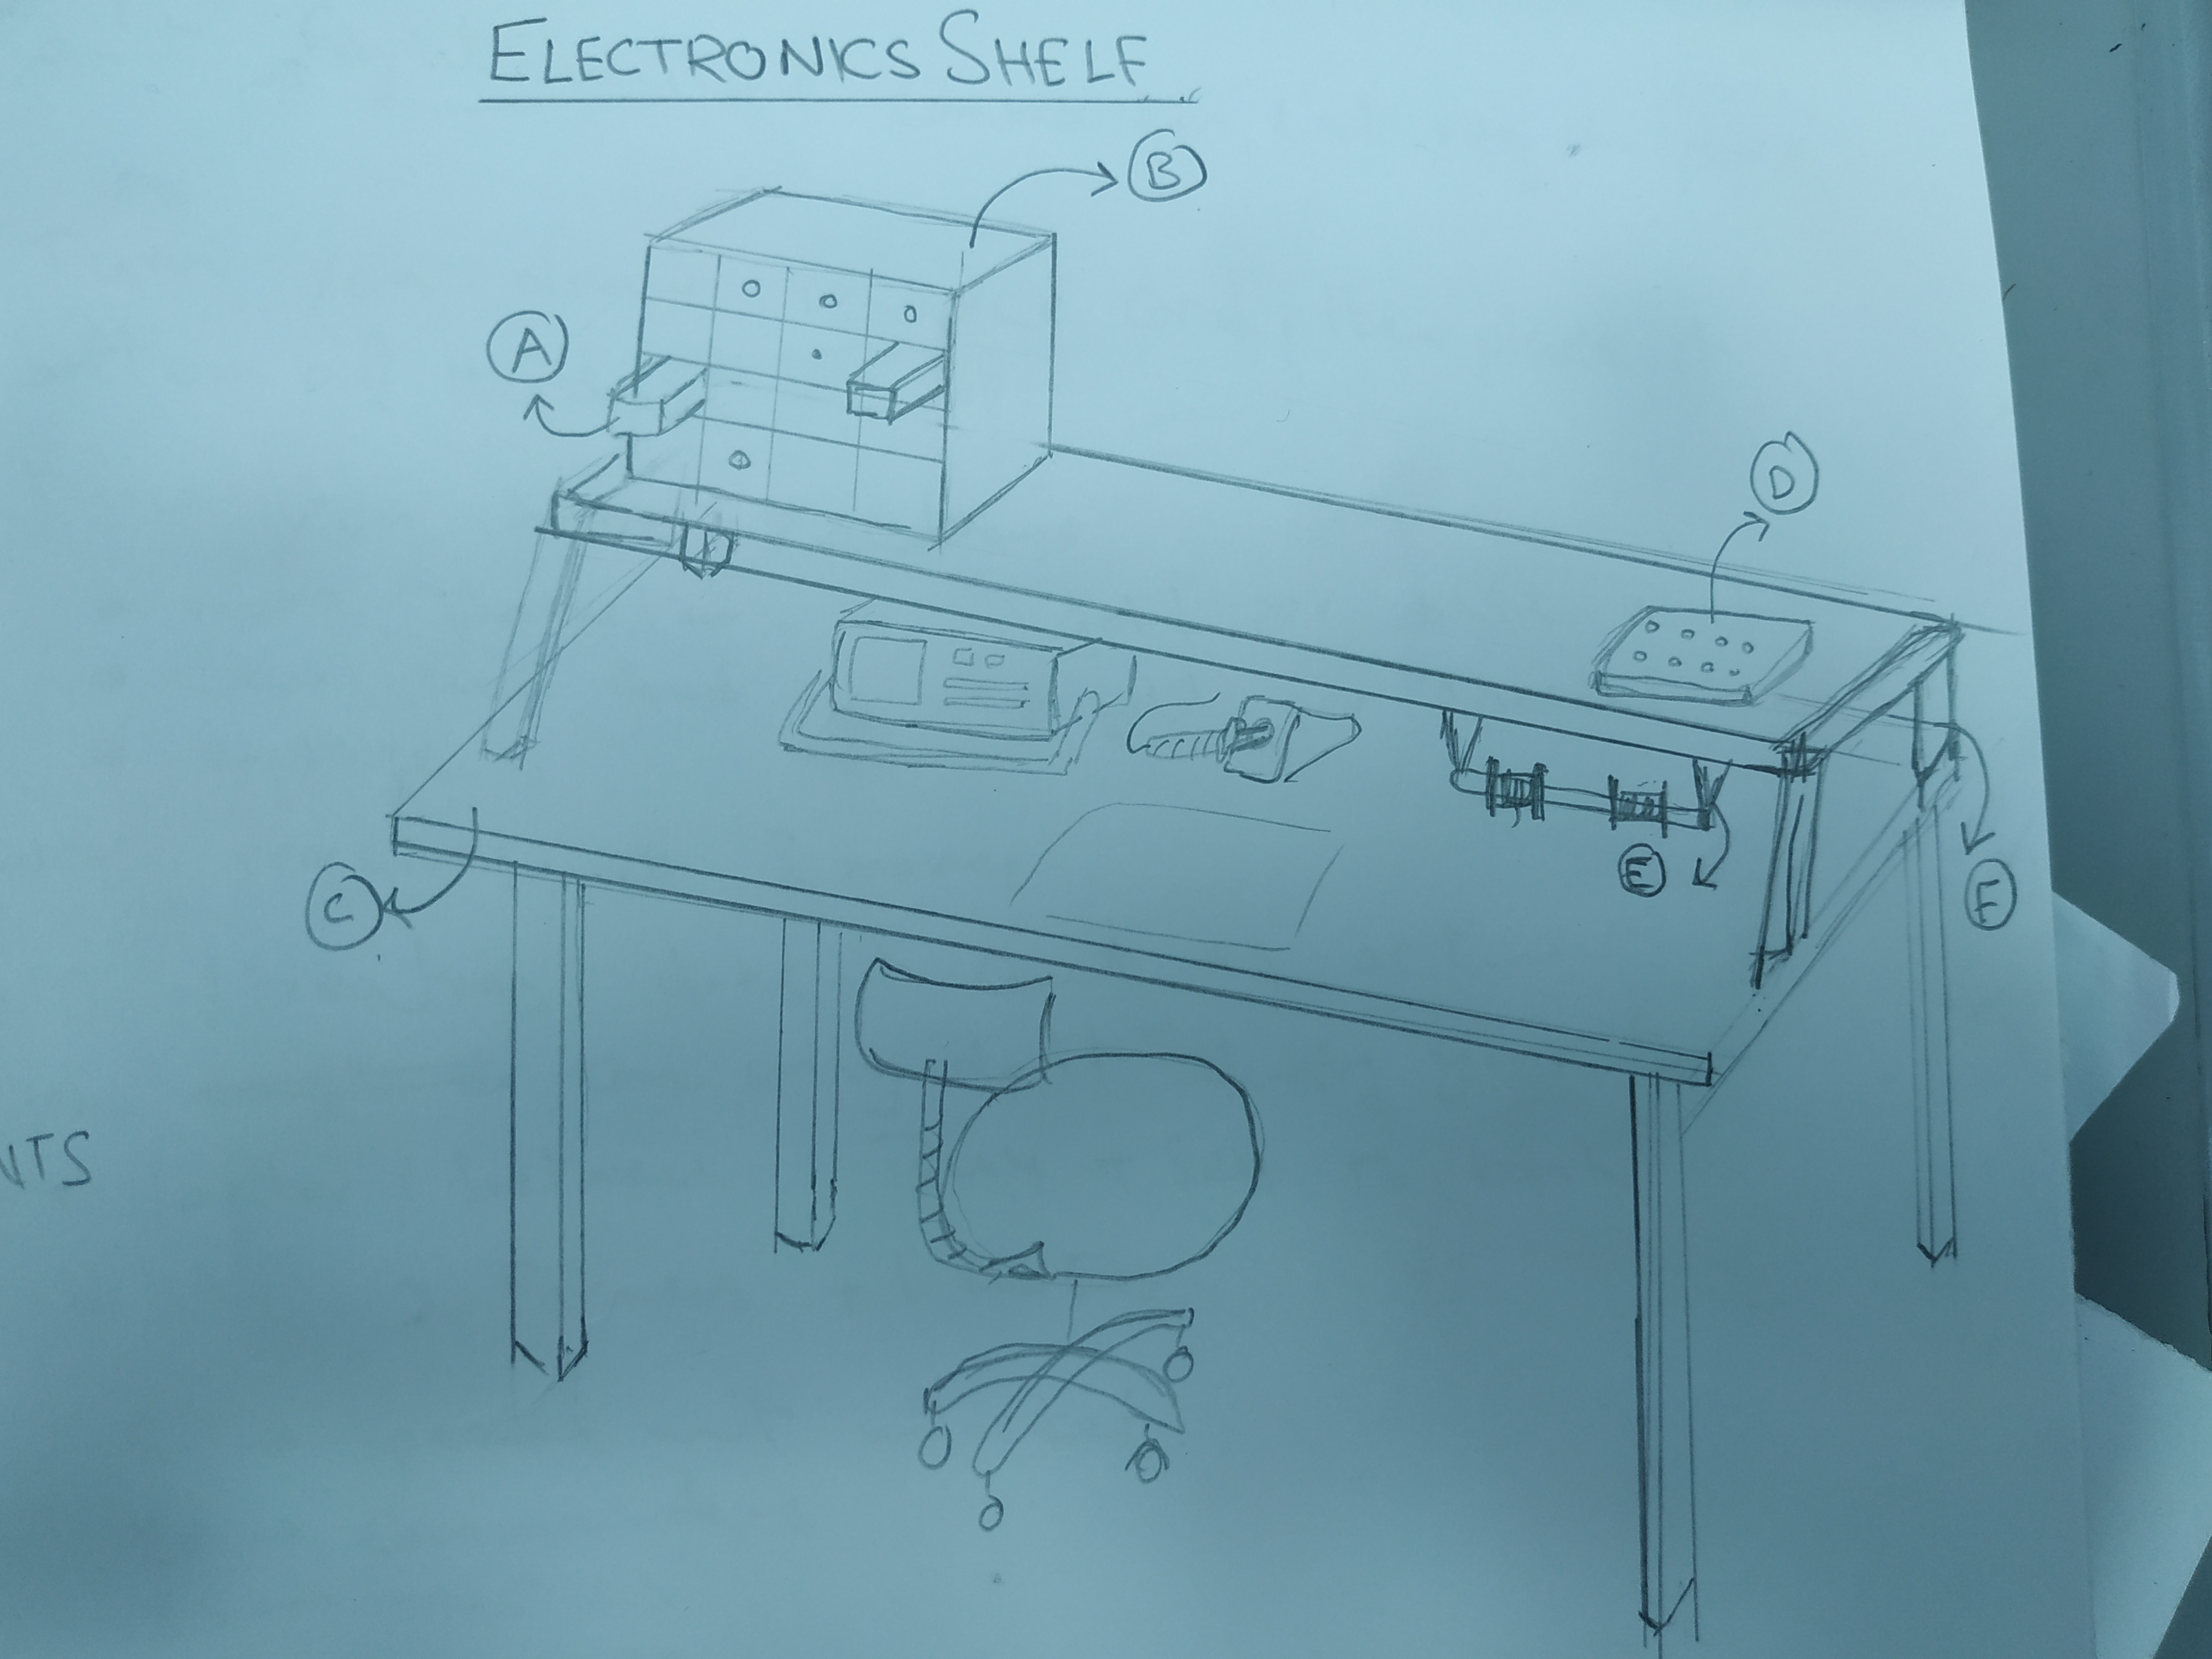 ELECTRONICS SHELF
B
A
D
E
F
C
NTS